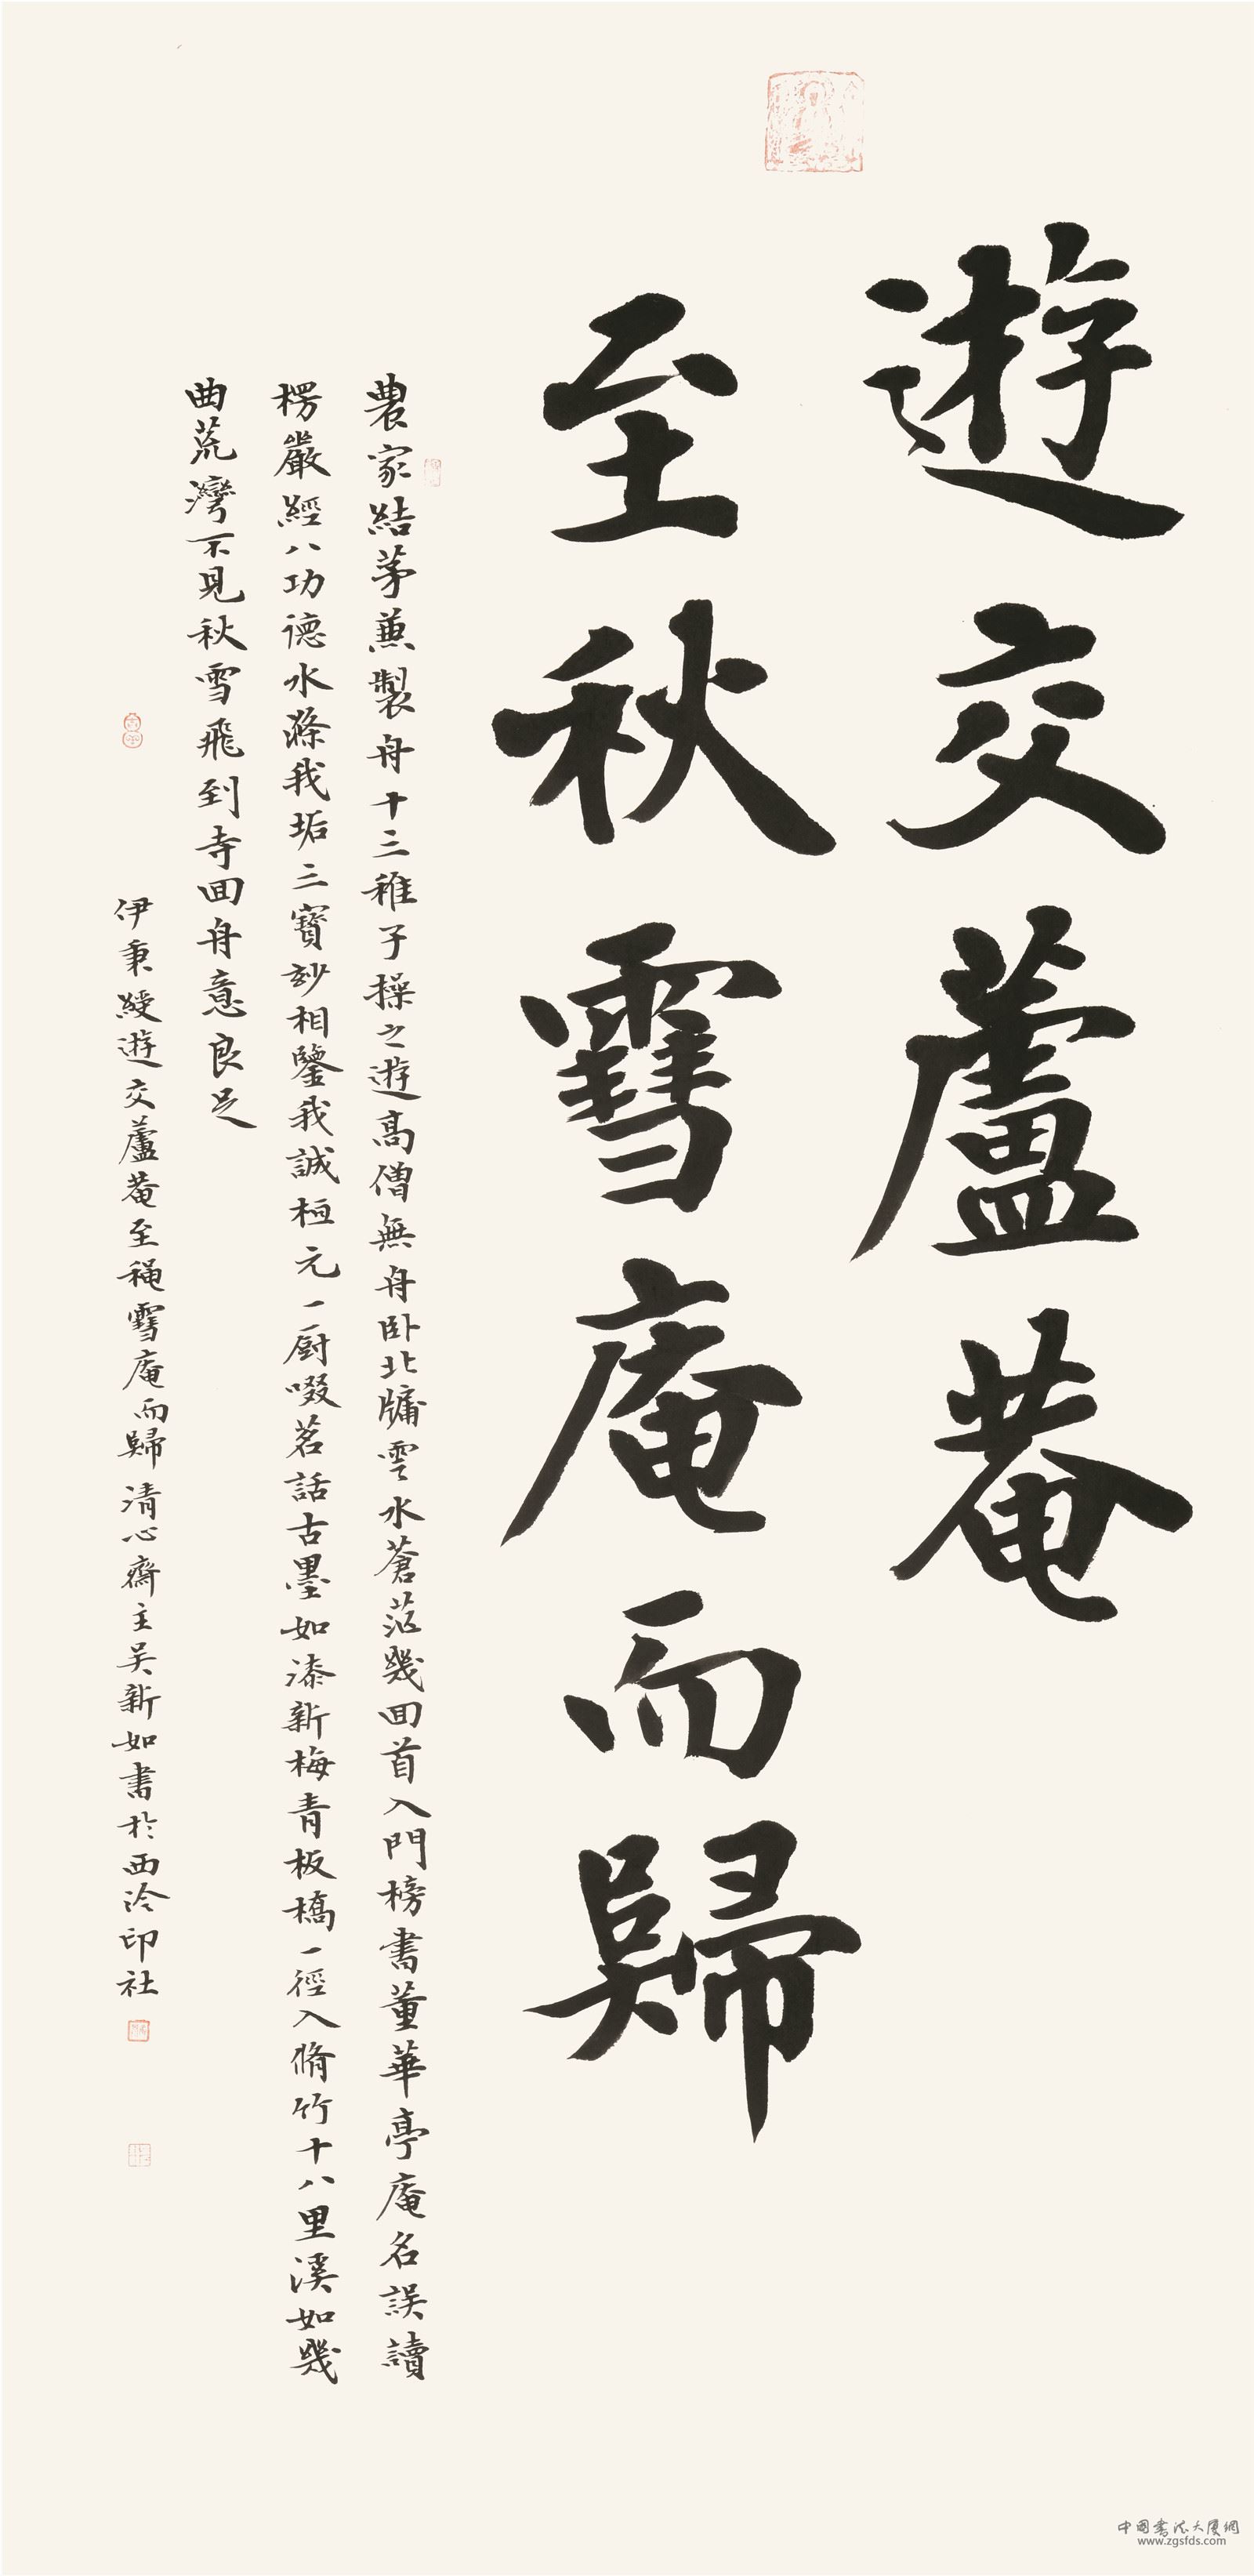 遊交蘆菴
至秋雪庵而歸
農家結茅兼製舟十三稚子操之遊高僧無舟卧北牖雲水蒼茫幾回首入門榜書董華亭庵名誤讀
楞嚴經八功德水滌我垢三寶玅相鑒我誠極元一厨啜茗話古墨如漆新梅青板橋一徑入脩竹十八里溪如幾
曲荒灣不見秋雪飛到寺回舟意良足
伊秉綬遊交蘆菴至穐雪庵而歸清心齋主吴新如書於西泠印社
中國書法大廈網
www.zgsfds.com